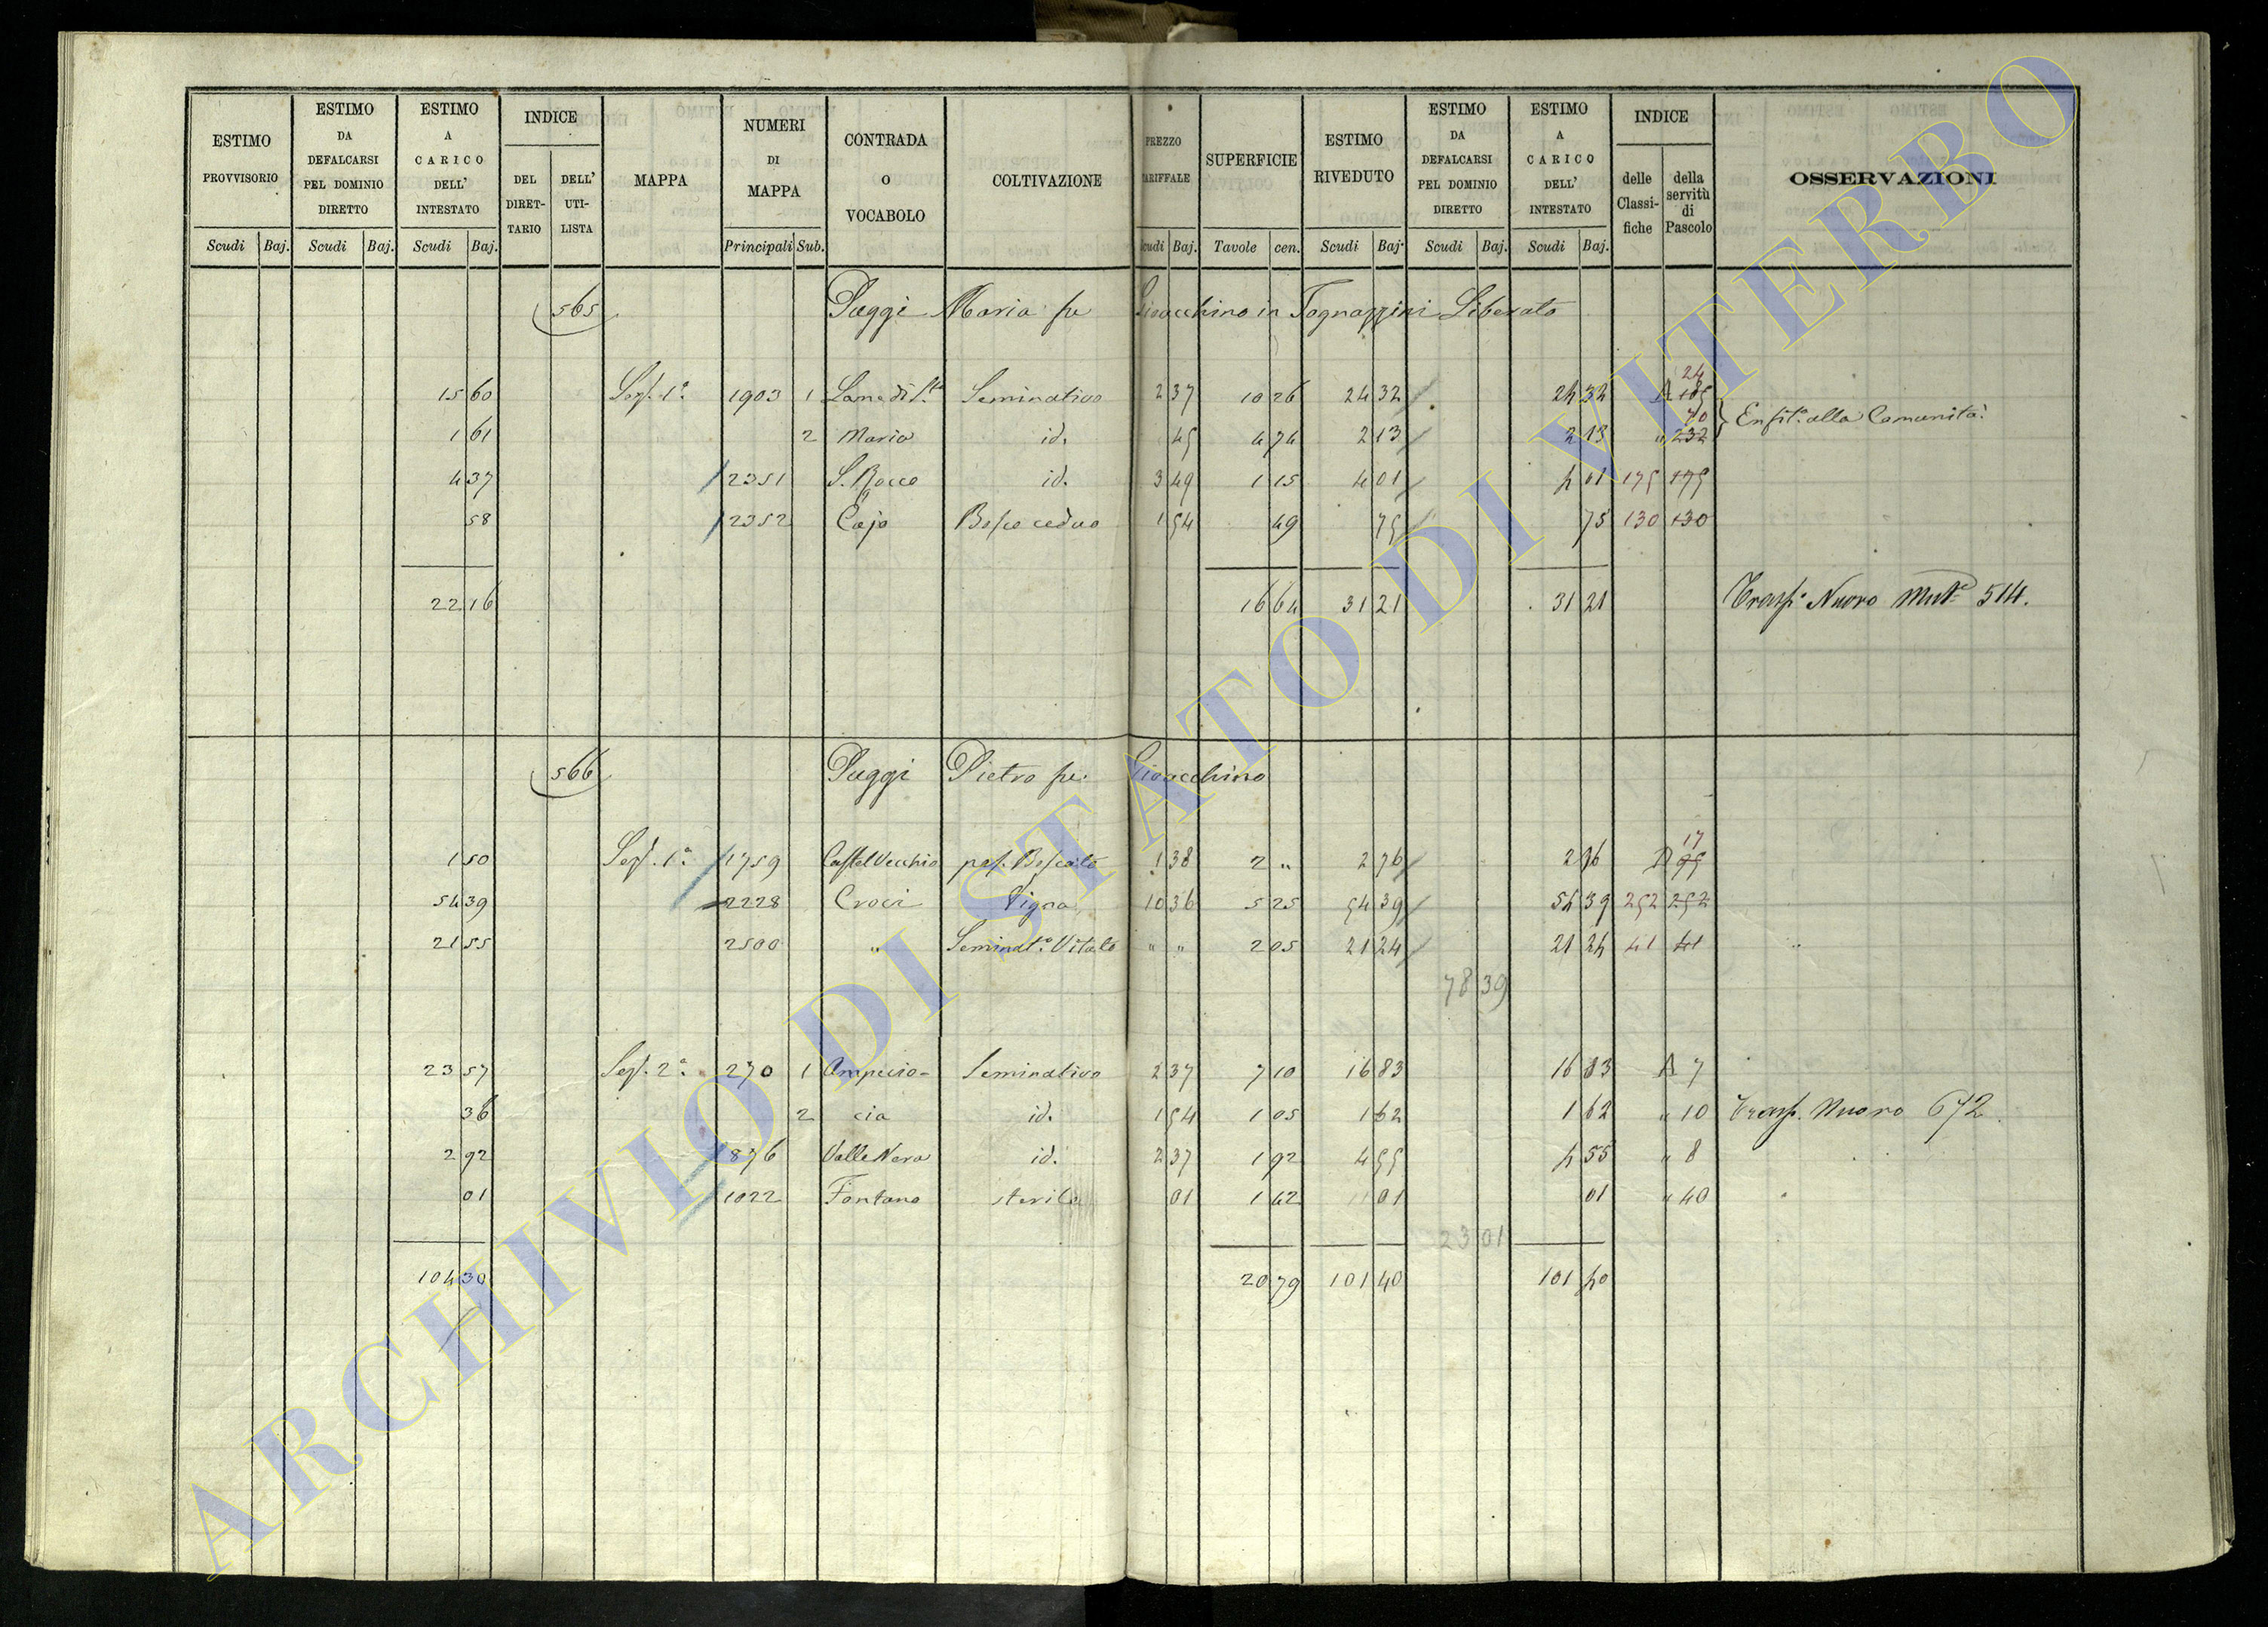 ESTIMO PROVVISORIO | ESTIMO DA DEFALCARSI PEL DOMINIO DIRETTO | ESTIMO A CARICO DELL' INTESTATO | INDICE | MAPPA | NUMERI DI MAPPA | CONTRADA O VOCABOLO | COLTIVAZIONE | PREZZO TARIFFALE | SUPERFICIE | ESTIMO RIVEDUTO | ESTIMO DA DEFALCARSI PEL DOMINIO DIRETTO | ESTIMO A CARICO DELL' INTESTATO | INDICE | OSSERVAZIONI
DEL DIRET-TARIO | DELL' UTI-LISTA | delle Classi-fiche | della servitù di Pascolo
Scudi | Baj. | Scudi | Baj. | Scudi | Baj. | Principali | Sub. | Scudi | Baj. | Tavole | cen. | Scudi | Baj. | Scudi | Baj. | Scudi | Baj.
565 Paggi Maria fu Gioacchino in Tognazzini Liberato
24
15 60 Sez. 1ª 1903 1 Lame di S.ta Seminativo 2 37 10 26 24 32 24 32 A
70
1 61 2 Maria id. 45 4 74 2 13 2 13 " 232 Enfit.ª alla Comunità
4 37 2351 S. Rocco id. 3 49 1 15 4 01 4 01 175 175
58 2352 Cajo Bosco ceduo 1 54 49 75 75 130 130
22 16 16 64 31 21 31 21 Trasp.º Nuovo Mut.e 514.
566 Paggi Pietro fu Gioacchino
17
1 50 Sez. 1ª 1759 Castel Vecchio pas. Boscato 1 38 2 " 2 76 2 76 A 95
54 39 2228 Croci Vigna 10 36 5 25 54 39 54 39 252 252
21 55 2500 " Seminat.º Vitato " " 2 05 21 24 21 24 41 41
78 39
23 57 Sez. 2ª 270 1 Ampecio- Seminativo 2 37 7 10 16 83 16 83 A 7
36 2 cia id. 1 54 1 05 1 62 1 62 " 10 Trasp. Nuovo 672
2 92 876 Valle Nera id. 2 37 1 92 4 55 4 55 " 8
01 1022 Fontana sterile 01 1 42 01 01 " 40
23 01
104 30 20 79 101 40 101 40
ARCHIVIO DI STATO DI VITERBO